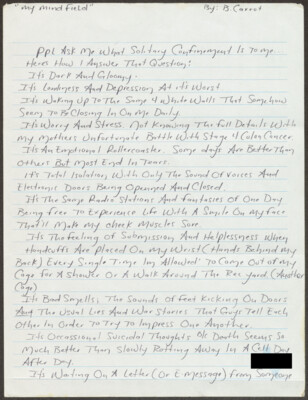 "my mind field" By: B. Carrot
Ppl Ask Me What Solitary Confinement Is To me.
Heres How I Answer That Question:
It's Dark And Gloomy.
It's Loneliness And Depression At it's Worst.
It's Waking Up To The Same 4 White Walls That Somehow
Seem To Be Closing In On Me Daily.
It's Worry And Stress. Not Knowing The Full Details With
My Mothers Unfortunate Battle With Stage 4 Colon Cancer.
It's An Emotional Rollercoaster. Some days Are Better Than
Others But Most End In Tears.
It's Total Isolation With Only The Sound of Voices And
Electronic Doors Being Opened And Closed.
It's The Same Radio Stations And Fantasies Of One Day
Being Free To Experience Life With A Smile On My Face
That'll Make My Cheek Muscles Sore.
It's The Feeling of Submission And Helplessness When
Handcuffs Are Placed On My Wrist (Hands Behind my
Back) Every Single Time Im Allowed To Come Out of My
Cage For A Shower Or A Walk Around The Rec yard (Another
Cage)
It's Bad Smells, The Sounds of Feet Kicking On Doors
The Usual Lies And War Stories That Guys Tell Each
Other In Order To Try To Impress One Another.
It's Occassional Suicidal Thoughts Cus Death Seems So
Much Better Than Slowly Rotting Away In A Cell Day
After Day.
It's Waiting On A Letter (Or E Message) From Someone